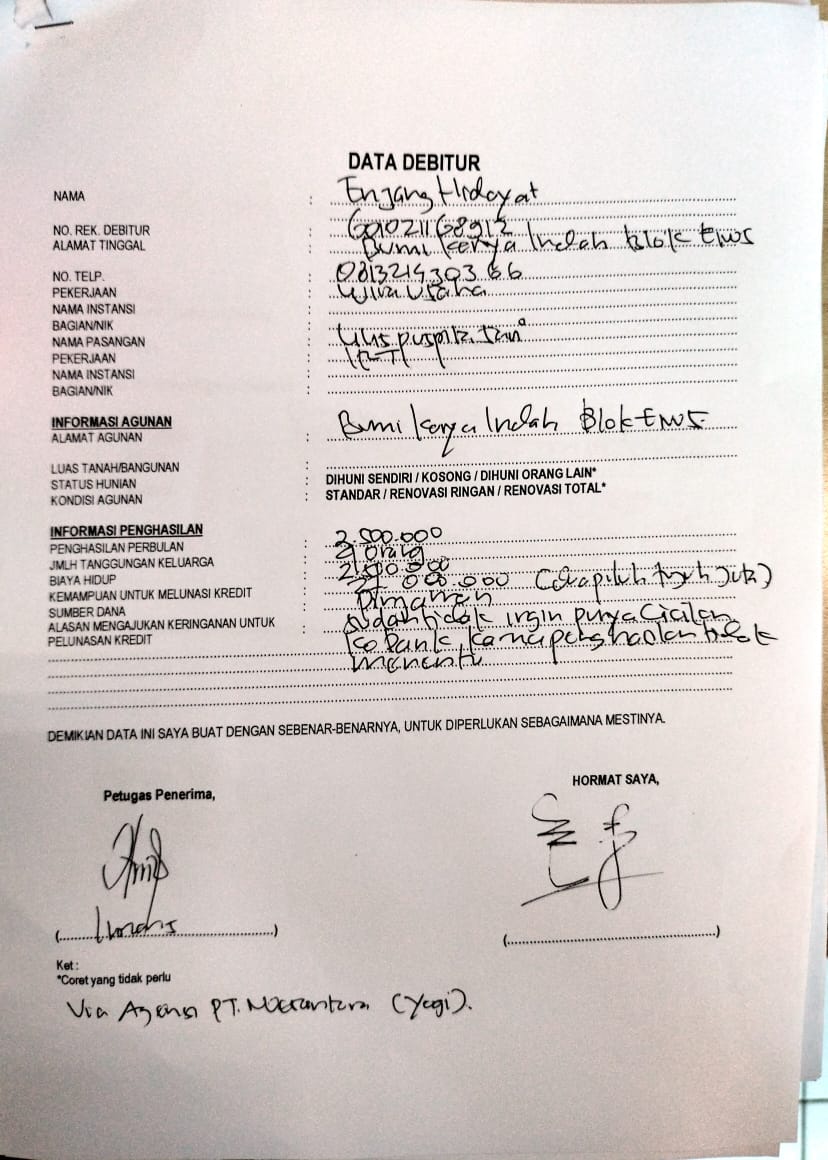 DATA DEBITUR
NAMA : Enjang Hidayat
NO. REK. DEBITUR :
ALAMAT TINGGAL : Bumi Karya Indah Blok
NO. TELP. :
PEKERJAAN : Wira Usaha
NAMA INSTANSI :
BAGIAN/NIK :
NAMA PASANGAN :
PEKERJAAN : IRT
NAMA INSTANSI :
BAGIAN/NIK :
INFORMASI AGUNAN
ALAMAT AGUNAN : Bumi Karya Indah Blok
LUAS TANAH/BANGUNAN :
STATUS HUNIAN : DIHUNI SENDIRI / KOSONG / DIHUNI ORANG LAIN*
KONDISI AGUNAN : STANDAR / RENOVASI RINGAN / RENOVASI TOTAL*
INFORMASI PENGHASILAN
PENGHASILAN PERBULAN : 2.500.000
JMLH TANGGUNGAN KELUARGA : orang
BIAYA HIDUP :
KEMAMPUAN UNTUK MELUNASI KREDIT :
SUMBER DANA : Pinaman
ALASAN MENGAJUKAN KERINGANAN UNTUK : sudah tidak ingin punya Cicilan
PELUNASAN KREDIT ke Bank, karna penghasilan tidak
menentu
DEMIKIAN DATA INI SAYA BUAT DENGAN SEBENAR-BENARNYA, UNTUK DIPERLUKAN SEBAGAIMANA MESTINYA.
Petugas Penerima, HORMAT SAYA,
Ket :
*Coret yang tidak perlu
Via Agensi PT. (Yogi).